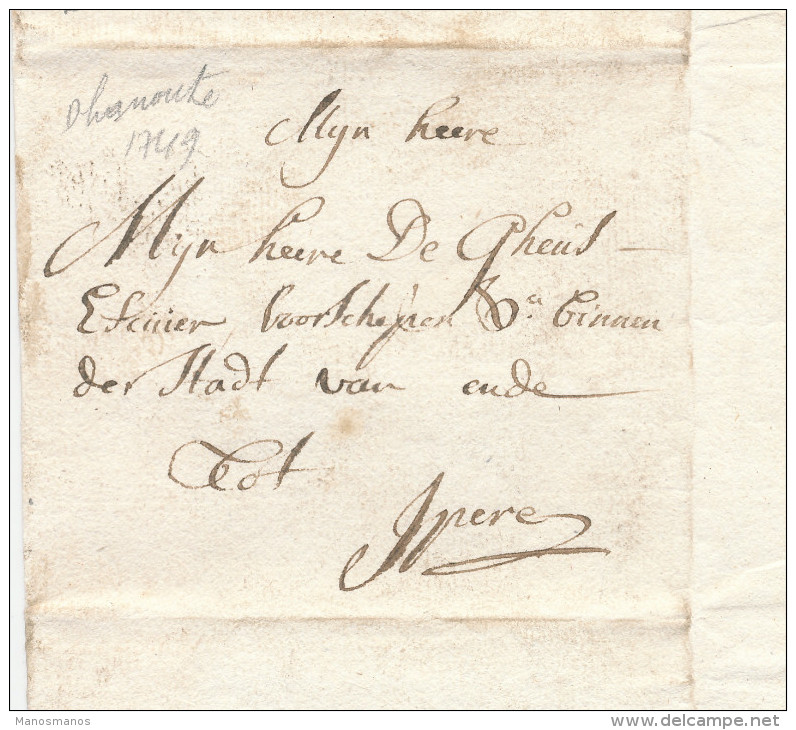 Dhernoute
1749
Myn heere
Mijn heere De Gheus
Escuier, Voorschepen &a binnen
der Stadt van ende
Tot
Ipere
Manosmanos
www.delcampe.net